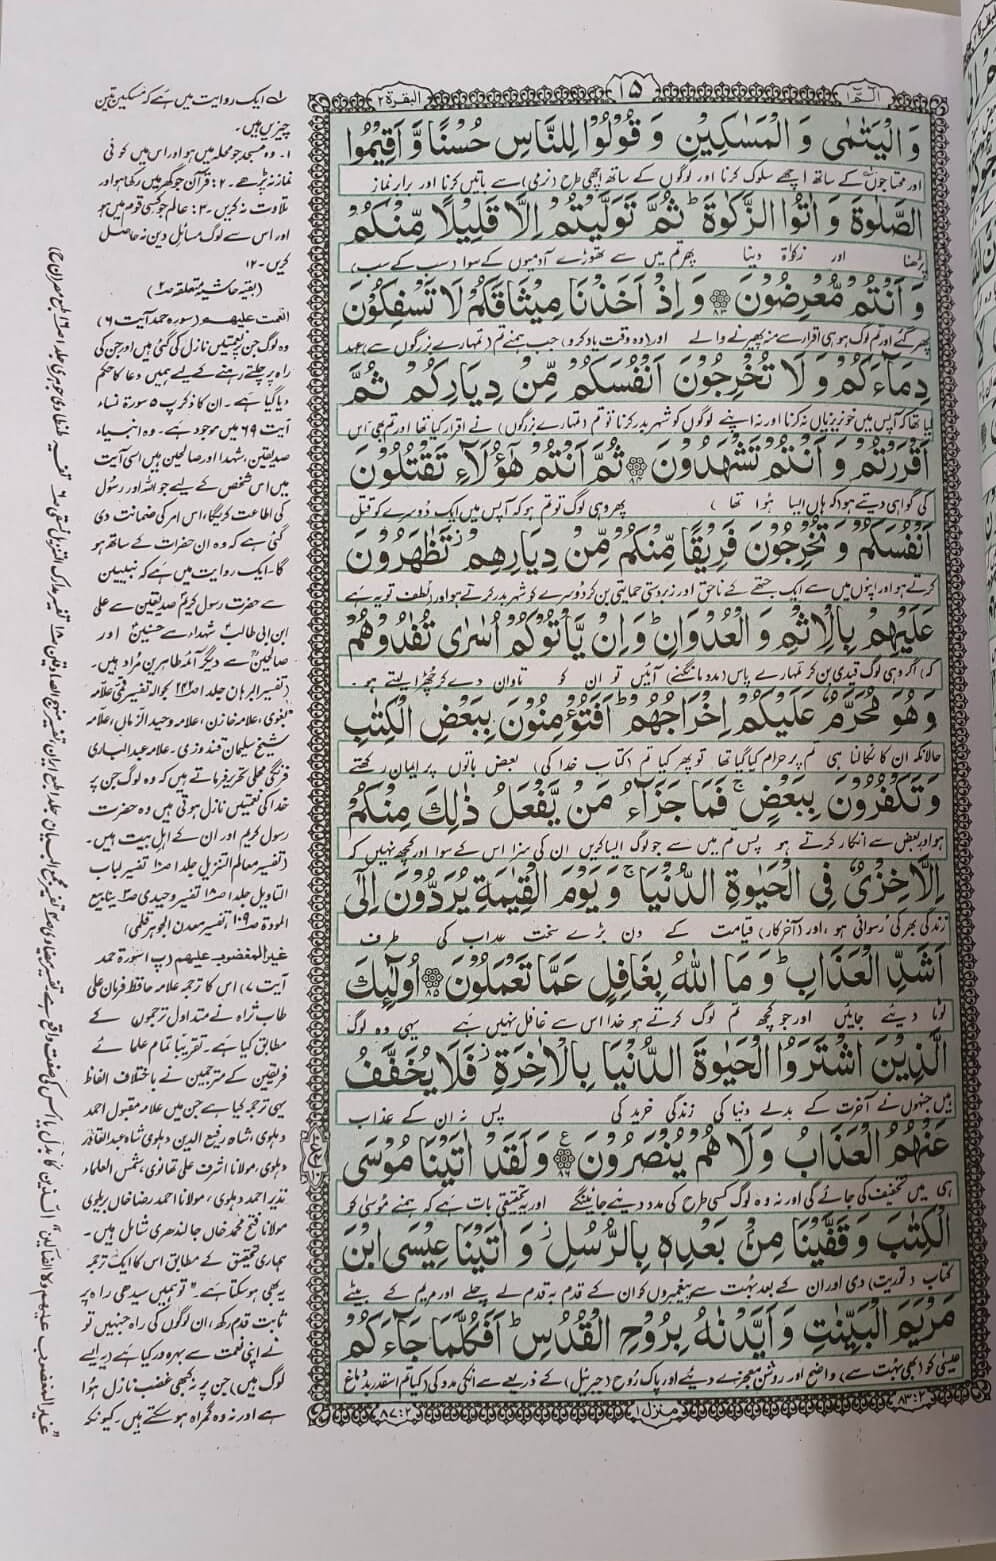 الٓمّٓ ۱
۱۵
البقرة ۲
وَ الْيَتٰمٰى وَ الْمَسٰكِيْنِ وَ قُوْلُوْا لِلنَّاسِ حُسْنًا وَّ اَقِيْمُوا
اور محتاجوں کے ساتھ اچھے سلوک کرنا اور لوگوں کے ساتھ اچھی طرح (نرمی) سے باتیں کرنا اور برابر نماز
الصَّلٰوةَ وَ اٰتُوا الزَّكٰوةَ ؕ ثُمَّ تَوَلَّيْتُمْ اِلَّا قَلِيْلًا مِّنْكُمْ
پڑھنا اور زکوٰة دینا پھر تم میں سے تھوڑے آدمیوں کے سوا (سب کے سب)
وَ اَنْتُمْ مُّعْرِضُوْنَ ۸۳ وَ اِذْ اَخَذْنَا مِيْثَاقَكُمْ لَا تَسْفِكُوْنَ
پھر گئے اور تم لوگ ہو ہی اقرار سے منہ پھیرنے والے اور (وہ وقت یاد کرو) جب ہمنے تم (تمہارے بزرگوں سے) عہد
دِمَآءَكُمْ وَ لَا تُخْرِجُوْنَ اَنْفُسَكُمْ مِّنْ دِيَارِكُمْ ثُمَّ
لیا تھا کہ آپس میں خونریزیاں نہ کرنا اور نہ اپنے لوگوں کو شہر بدر کرنا تو تم (تمہارے بزرگوں) نے اقرار کیا تھا اور تم بھی اس
اَقْرَرْتُمْ وَ اَنْتُمْ تَشْهَدُوْنَ ۸۴ ثُمَّ اَنْتُمْ هٰٓؤُلَآءِ تَقْتُلُوْنَ
کی گواہی دیتے ہو (کہ ہاں ایسا ہوا تھا) پھر وہی لوگ تو تم ہو کہ آپس میں ایک دوسرے کو قتل
اَنْفُسَكُمْ وَ تُخْرِجُوْنَ فَرِيْقًا مِّنْكُمْ مِّنْ دِيَارِهِمْ ؗ تَظٰهَرُوْنَ
کرتے ہو اور اپنوں میں سے ایک جتھے کے ناحق اور زبردستی حمایتی بن کر دوسرے کو شہر بدر کرتے ہو اور لطف تو یہ ہے
عَلَيْهِمْ بِالْاِثْمِ وَ الْعُدْوَانِ ؕ وَ اِنْ يَّاْتُوْكُمْ اُسٰرٰى تُفٰدُوْهُمْ
کہ) اگر وہی لوگ قیدی بن کر تمہارے پاس (مدد مانگنے) آئیں تو ان کو تاوان دے کر چھڑا لیتے ہو۔
وَ هُوَ مُحَرَّمٌ عَلَيْكُمْ اِخْرَاجُهُمْ ؕ اَفَتُؤْمِنُوْنَ بِبَعْضِ الْكِتٰبِ
حالانکہ ان کا نکالنا ہی تم پر حرام کیا گیا تھا تو پھر کیا تم (کتاب خدا کی) بعض باتوں پر ایمان رکھتے
وَ تَكْفُرُوْنَ بِبَعْضٍ ۚ فَمَا جَزَآءُ مَنْ يَّفْعَلُ ذٰلِكَ مِنْكُمْ
ہو اور بعض سے انکار کرتے ہو پس تم میں سے جو لوگ ایسا کریں ان کی سزا اس کے سوا اور کچھ نہیں کہ
اِلَّا خِزْيٌ فِى الْحَيٰوةِ الدُّنْيَا ۚ وَ يَوْمَ الْقِيٰمَةِ يُرَدُّوْنَ اِلٰٓى
زندگی بھر کی رسوائی ہو، اور (آخر کار) قیامت کے دن بڑے سخت عذاب کی طرف
اَشَدِّ الْعَذَابِ ؕ وَ مَا اللّٰهُ بِغَافِلٍ عَمَّا تَعْمَلُوْنَ ۸۵ اُولٰٓئِكَ
لوٹا دیئے جائیں اور جو کچھ تم لوگ کرتے ہو خدا اس سے غافل نہیں ہے یہی وہ لوگ
الَّذِيْنَ اشْتَرَوُا الْحَيٰوةَ الدُّنْيَا بِالْاٰخِرَةِ ؗ فَلَا يُخَفَّفُ
ہیں جنہوں نے آخرت کے بدلے دنیا کی زندگی خرید کی پس نہ ان کے عذاب
عَنْهُمُ الْعَذَابُ وَ لَا هُمْ يُنْصَرُوْنَ ۸۶ ع وَ لَقَدْ اٰتَيْنَا مُوْسَى
ہی میں تخفیف کی جائے گی اور نہ وہ لوگ کسی طرح کی مدد دیئے جائینگے اور یہ تحقیقی بات ہے کہ ہمنے موسیٰ کو
الْكِتٰبَ وَ قَفَّيْنَا مِنْۢ بَعْدِهٖ بِالرُّسُلِ ؗ وَ اٰتَيْنَا عِيْسَى ابْنَ
کتاب (توریت) دی اور ان کے بعد بہت سے پیغمبروں کو ان کے قدم بہ قدم لے چلے اور مریم کے بیٹے
مَرْيَمَ الْبَيِّنٰتِ وَ اَيَّدْنٰهُ بِرُوْحِ الْقُدُسِ ؕ اَفَكُلَّمَا جَآءَكُمْ
عیسیٰ کو (بھی بہت سے) واضح اور روشن معجزے دیئے اور پاک روح (جبرئیل) کے ذریعے سے انکی مدد کی کیا تم اسقدر بددماغ
۸۳:۲
منزل ۱
۸۷:۲
۱ے ایک روایت میں ہے کہ مسکین تین
چیزیں ہیں۔
۱۔ وہ مسجد جو محلہ میں ہو اور اس میں کوئی
نماز نہ پڑھے۔ ۲: قرآن جو گھر میں رکھا ہو اور
تلاوت نہ کریں۔ ۳: عالم جو کسی قوم میں ہو
اور اس سے لوگ مسائل دین نہ حاصل
کریں۔ ۱۲
(بقیہ حاشیہ متعلقہ ص۲)
انعمت علیہم (سورہ حمد آیت ۶)
وہ لوگ جن پر نعمتیں نازل کی گئی ہیں اور جن کی
راہ پر چلتے رہنے کے لیے ہمیں دعا کا حکم
دیا گیا ہے۔ ان کا ذکر پ ۵ سورة نساء
آیت ۶۹ میں موجود ہے۔ وہ انبیاء
صدیقین، شہدا اور صالحین ہیں اسی آیت
میں اس شخص کے لیے جو اللہ اور رسول
کی اطاعت کریگا، اس امر کی ضمانت دی
گئی ہے کہ وہ ان حضرات کے ساتھ ہو
گا۔ ایک روایت میں ہے کہ نبیین
سے حضرت رسول کریم صدیقین سے علی
ابن ابی طالب شہداء سے حسنین اور
صالحین سے دیگر آئمہ طاہرین مراد ہیں۔
(تفسیر البرہان جلد ۱ ص۲۴ بحوالہ تفسیر قمی) علامہ
بغوی، علامہ خازن، علامہ وحید الزماں، علامہ
شیخ سلیمان قندوزی۔ علامہ عبدالباری
فرنگی محلی تحریر فرماتے ہیں کہ وہ لوگ جن پر
خدا کی نعمتیں نازل ہوئی ہیں وہ حضرت
رسول کریم اور ان کے اہل بیت ہیں۔
(تفسیر معالم التنزیل جلد ۱ ص۱۰ تفسیر لباب
التاویل جلد ۱ ص۱۸ تفسیر وحیدی ص۳ ینابیع
المودة ص۱۰۹، تفسیر معدن الجوہر قلمی)
غیر المغضوب علیہم (پ ۱ سورة حمد
آیت ۷) اس کا ترجمہ علامہ حافظ فرمان علی
طاب ثراہ نے متداول ترجموں کے
مطابق کیا ہے۔ تقریباً تمام علمائے
فریقین کے مترجمین نے باختلاف الفاظ
یہی ترجمہ کیا ہے جن میں علامہ مقبول احمد
دہلوی، شاہ رفیع الدین دہلوی شاہ عبدالقادر
دہلوی، مولانا اشرف علی تھانوی، شمس العلماء
نذیر احمد دہلوی، مولانا احمد رضا خاں بریلوی
مولانا فتح محمد خاں جالندھری شامل ہیں۔
ہماری تحقیق کے مطابق اس کا ایک ترجمہ
یہ بھی ہوسکتا ہے۔ "تو ہمیں سیدھی راہ پر
ثابت قدم رکھ، ان لوگوں کی راہ جنہیں تو
نے اپنی نعمت سے بہرہ ور کیا ہے (یہ ایسے
لوگ ہیں) جن پر نہ کبھی غضب نازل ہوا
ہے اور نہ وہ گمراہ ہوسکتے ہیں۔ کیونکہ
"غیر المغضوب علیہم ولا الضالین" الذین کا بدل یا اس کی صفت واقع ہے